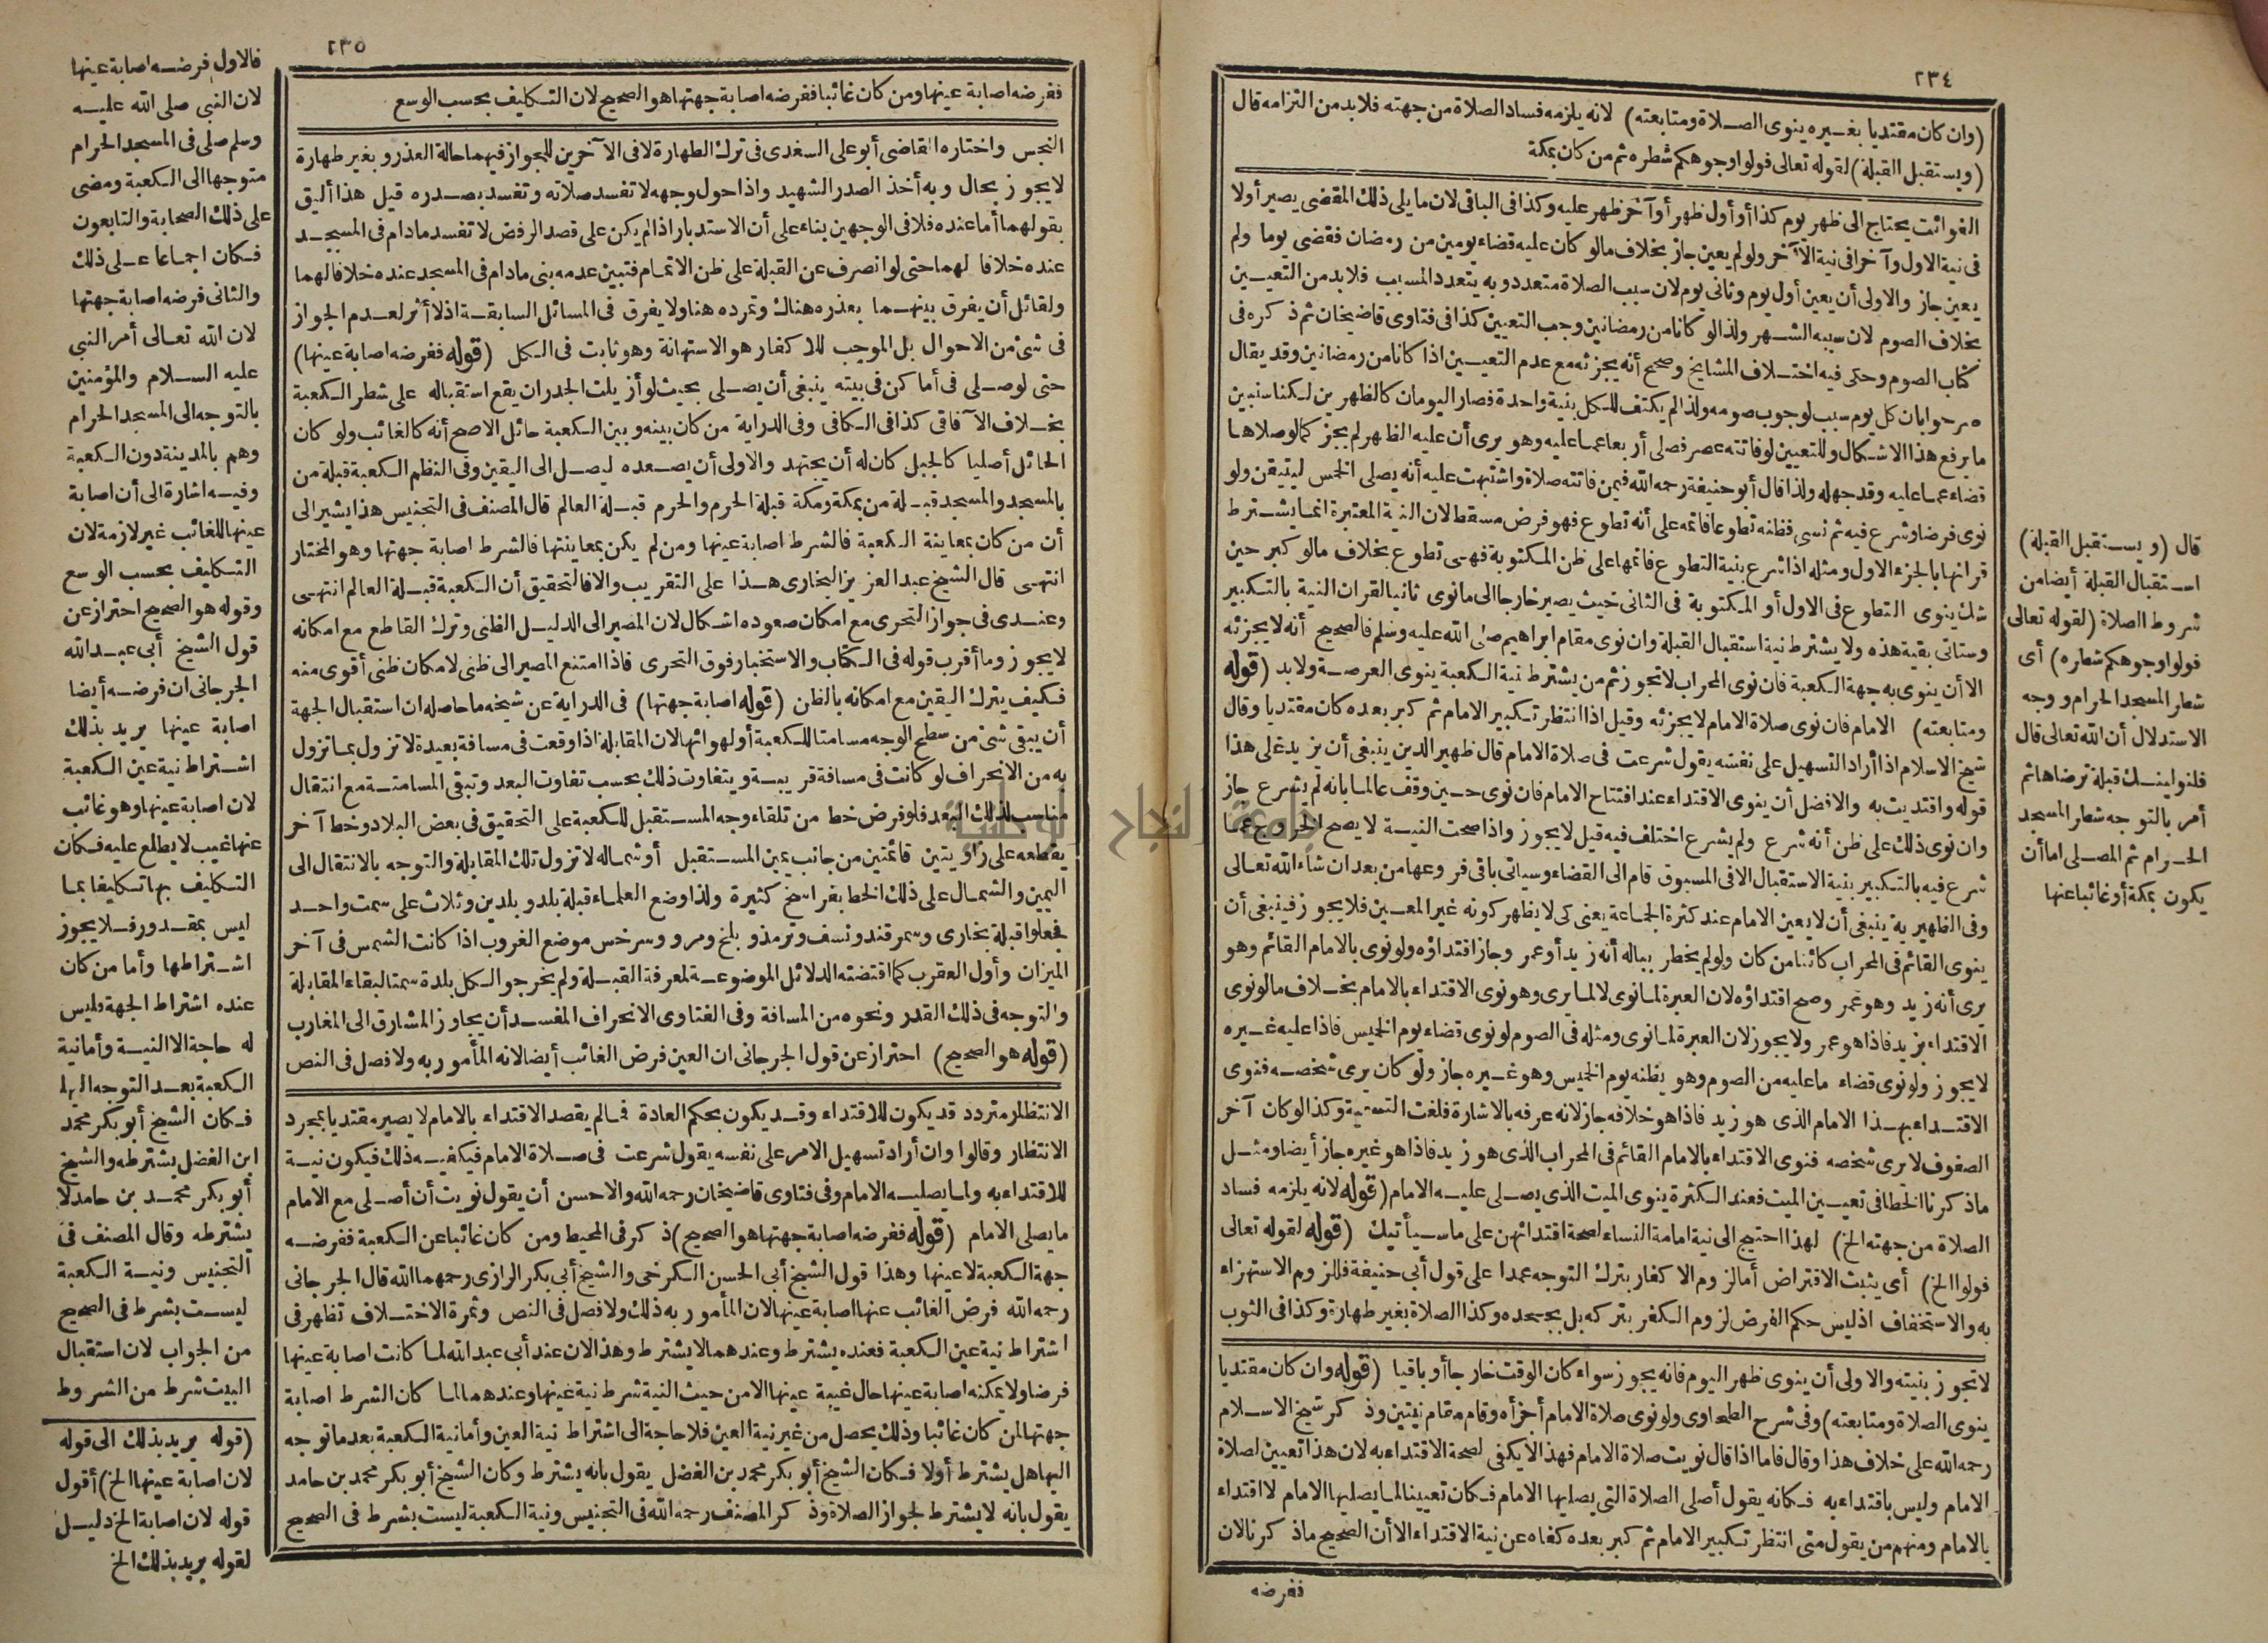 ٢٣٤
(وان كان مقتديا بغيره ينوى الصلاة ومتابعته) لانه يلزمه فساد الصلاة من جهته فلا بد من التزامه قال
(ويستقبل القبلة) لقوله تعالى فولوا وجوهكم شطره ثم من كان بمكة
الفوائت يحتاج الى ظهر يوم كذا أو أول ظهر أو آخر ظهر عليه وكذا فى الباقى لان ما يلى ذلك المقضى يصير أولا
فى نية الاول وآخرا فى نية الآخر ولو لم يعين جاز بخلاف مالو كان عليه قضاء يومين من رمضان فقضى يوما ولم
يعين جاز والاولى أن يعين أول يوم وثانى يوم لان سبب الصلاة متعدد وبه يتعدد المسبب فلا بد من التعيين
بخلاف الصوم لان سببه الشهر ولذا لو كانا من رمضانين وجب التعيين كذا فى فتاوى قاضيخان ثم ذكره فى
كتاب الصوم وحكى فيه اختلاف المشايخ وصحح أنه يجزئه مع عدم التعيين اذا كانا من رمضانين وقد يقال
صرحوا بان كل يوم سبب لوجوب صومه ولذا لم يكتف للكل بنية واحدة فصار اليومان كالظهرين لكنا سنبين
ما يرفع هذا الاشكال وللتعيين لو فاتته عصر فصلى أربعا عما عليه وهو يرى أن عليه الظهر لم يجز كما لو صلاها
قضاء عما عليه وقد جهله ولذا قال أبو حنيفة رحمه الله فيمن فاتته صلاة واشتبهت عليه أنه يصلى الخمس ليتيقن ولو
نوى فرضا وشرع فيه ثم نسى فظنه تطوعا فاتمه على أنه تطوع فهو فرض مسقط لان النية المعتبرة انما يشترط
قرانها بالجزء الاول ومثله اذا شرع بنية التطوع فاتمها على ظن المكتوبة فهى تطوع بخلاف مالو كبر حين
شك ينوى التطوع فى الاول أو المكتوبة فى الثانى حيث يصير خارجا الى ما نوى ثانيا لقران النية بالتكبير
وستاتى بقية هذه ولا يشترط نية استقبال القبلة وان نوى مقام ابراهيم صلى الله عليه وسلم فالصحيح أنه لا يجزئه
الا أن ينوى به جهة الكعبة فان نوى المحراب لا تجوز ثم من يشترط نية الكعبة ينوى العرصة ولا بد (قوله
ومتابعته) الامام فان نوى صلاة الامام لا يجزئه وقيل اذا انتظر تكبير الامام ثم كبر بعده كان مقتديا وقال
شيخ الاسلام اذا أراد التسهيل على نفسه يقول شرعت فى صلاة الامام قال ظهير الدين ينبغى أن يزيد على هذا
قوله واقتديت به والافضل أن ينوى الاقتداء عند افتتاح الامام فان نوى حين وقف عالما بانه لم يشرع جاز
وان نوى ذلك على ظن أنه شرع ولم يشرع اختلف فيه قيل لا يجوز واذا صحت النية لا يصح الخروج عما
شرع فيه بالتكبير بنية الاستقبال الا فى المسبوق قام الى القضاء وسياتى باقى فروعها من بعد ان شاء الله تعالى
وفى الظهيرية ينبغى أن لا يعين الامام عند كثرة الجماعة يعنى كى لا يظهر كونه غير المعين فلا يجوز فينبغى أن
ينوى القائم فى المحراب كائنا من كان ولو لم يخطر بباله أنه زيد أو عمر وجاز اقتداؤه ولو نوى بالامام القائم وهو
يرى أنه زيد وهو عمر وصح اقتداؤه لان العبرة لما نوى لا لما يرى وهو نوى الاقتداء بالامام بخلاف مالو نوى
الاقتداء بزيد فاذا هو عمر ولا يجوز لان العبرة لما نوى ومثله فى الصوم لو نوى قضاء يوم الخميس فاذا عليه غيره
لا يجوز ولو نوى قضاء ما عليه من الصوم وهو يظنه يوم الخميس وهو غيره جاز ولو كان يرى شخصه فنوى
الاقتداء بهذا الامام الذى هو زيد فاذا هو خلافه جاز لانه عرفه بالاشارة فلغت التسمية وكذا لو كان آخر
الصفوف لا يرى شخصه فنوى الاقتداء بالامام القائم فى المحراب الذى هو زيد فاذا هو غيره جاز أيضا ومثل
ما ذكرنا الخطا فى تعيين الميت فعند الكثرة ينوى الميت الذى يصلى عليه الامام (قوله لانه يلزمه فساد
الصلاة من جهته الخ) لهذا احتيج الى نية امامة النساء لصحة اقتدائهن على ما سيأتيك (قوله لقوله تعالى
فولوا الخ) أى يثبت الافتراض أما لزوم الاكفار بترك التوجه عمدا على قول أبى حنيفة فللزوم الاستهزاء
به والاستخفاف اذ ليس حكم الفرض لزوم الكفر بتركه بل بجحده وكذا الصلاة بغير طهارة وكذا فى الثوب
لا تجوز بنيته والاولى أن ينوى ظهر اليوم فانه يجوز سواء كان الوقت خارجا أو باقيا (قوله وان كان مقتديا
ينوى الصلاة ومتابعته) وفى شرح الطحاوى ولو نوى صلاة الامام أجزأه وقام مقام نيتين وذكر شيخ الاسلام
رحمه الله على خلاف هذا وقال فاما اذا قال نويت صلاة الامام فهذا لا يكفى لصحة الاقتداء به لان هذا تعيين لصلاة
الامام وليس باقتداء به فكانه يقول أصلى الصلاة التى يصليها الامام فكان تعيينا لما يصليها الامام لا اقتداء
بالامام ومنهم من يقول متى انتظر تكبير الامام ثم كبر بعده كفاه عن نية الاقتداء الا أن الصحيح ما ذكرنا لان
ففرضه
قال (ويستقبل القبلة)
استقبال القبلة أيضا من
شروط الصلاة (لقوله تعالى
فولوا وجوهكم شطره) أى
شطر المسجد الحرام ووجه
الاستدلال أن الله تعالى قال
فلنولينك قبلة ترضاها ثم
أمر بالتوجه شطر المسجد
الحرام ثم المصلى اما أن
يكون بمكة أو غائبا عنها
٢٣٥
ففرضه اصابة عينها ومن كان غائبا ففرضه اصابة جهتها هو الصحيح لان التكليف بحسب الوسع
النجس واختاره القاضى أبو على السغدى فى ترك الطهارة لا فى الآخرين للجواز فيهما حالة العذر وبغير طهارة
لا يجوز بحال وبه أخذ الصدر الشهيد واذا حول وجهه لا تفسد صلاته وتفسد بصدره قيل هذا أليق
بقولهما أما عنده فلا فى الوجهين بناء على أن الاستدبار اذا لم يكن على قصد الرفض لا تفسد مادام فى المسجد
عنده خلافا لهما حتى لو انصرف عن القبلة على ظن الاتمام فتبين عدمه بنى مادام فى المسجد عنده خلافا لهما
ولقائل أن يفرق بينهما بعذره هناك وتمرده هنا ولا يفرق فى المسائل السابقة اذ لا أثر لعدم الجواز
فى شئ من الاحوال بل الموجب للاكفار هو الاستهانة وهو ثابت فى الكل (قوله ففرضه اصابة عينها)
حتى لو صلى فى أماكن فى بيته ينبغى أن يصلى بحيث لو أزيلت الجدران يقع استقباله على شطر الكعبة
بخلاف الآفاقى كذا فى الكافى وفى الدراية من كان بينه وبين الكعبة حائل الاصح أنه كالغائب ولو كان
الحائل أصليا كالجبل كان له أن يجتهد والاولى أن يصعده ليصل الى اليقين وفى النظم الكعبة قبلة من
بالمسجد والمسجد قبلة من بمكة ومكة قبلة الحرم والحرم قبلة العالم قال المصنف فى التجنيس هذا يشير الى
أن من كان بمعاينة الكعبة فالشرط اصابة عينها ومن لم يكن بمعاينتها فالشرط اصابة جهتها وهو المختار
انتهى قال الشيخ عبد العزيز البخارى هذا على التقريب والا فالتحقيق أن الكعبة قبلة العالم انتهى
وعندى فى جواز التحرى مع امكان صعوده اشكال لان المصير الى الدليل الظنى وترك القاطع مع امكانه
لا يجوز وما أقرب قوله فى الكتاب والاستخبار فوق التحرى فاذا امتنع المصير الى ظنى لامكان ظنى أقوى منه
فكيف يترك اليقين مع امكانه بالظن (قوله اصابة جهتها) فى الدراية عن شيخه ما حاصله ان استقبال الجهة
أن يبقى شئ من سطح الوجه مسامتا للكعبة أو لهوائها لان المقابلة اذا وقعت فى مسافة بعيدة لا تزول بما تزول
به من الانحراف لو كانت فى مسافة قريبة ويتفاوت ذلك بحسب تفاوت البعد وتبقى المسامتة مع انتقال
مناسب لذلك البعد فلو فرض خط من تلقاء وجه المستقبل للكعبة على التحقيق فى بعض البلاد وخط آخر
يقطعه على زاويتين قائمتين من جانب يمين المستقبل أو شماله لا تزول تلك المقابلة والتوجه بالانتقال الى
اليمين والشمال على ذلك الخط بفراسخ كثيرة ولذا وضع العلماء قبلة بلد وبلدين وثلاث على سمت واحد
فجعلوا قبلة بخارى وسمرقند ونسف وترمذ وبلخ ومرو وسرخس موضع الغروب اذا كانت الشمس فى آخر
الميزان وأول العقرب كما اقتضته الدلائل الموضوعة لمعرفة القبلة ولم يخرجوا لكل بلدة سمتا لبقاء المقابلة
والتوجه فى ذلك القدر ونحوه من المسافة وفى الفتاوى الانحراف المفسد أن يجاوز المشارق الى المغارب
(قوله هو الصحيح) احتراز عن قول الجرجانى ان العين فرض الغائب أيضا لانه المأمور به ولا فصل فى النص
الانتظار متردد قد يكون للاقتداء وقد يكون بحكم العادة فما لم يقصد الاقتداء بالامام لا يصير مقتديا بمجرد
الانتظار وقالوا وان أراد تسهيل الامر على نفسه يقول شرعت فى صلاة الامام فيكفيه ذلك فيكون نية
للاقتداء به ولما يصليه الامام وفى فتاوى قاضيخان رحمه الله والاحسن أن يقول نويت أن أصلى مع الامام
ما يصلى الامام (قوله ففرضه اصابة جهتها هو الصحيح) ذكر فى المحيط ومن كان غائبا عن الكعبة ففرضه
جهة الكعبة لا عينها وهذا قول الشيخ أبى الحسن الكرخى والشيخ أبى بكر الرازى رحمهما الله قال الجرجانى
رحمه الله فرض الغائب عنها اصابة عينها لان المأمور به ذلك ولا فصل فى النص وثمرة الاختلاف تظهر فى
اشتراط نية عين الكعبة فعنده يشترط وعندهما لا يشترط وهذا لان عند أبى عبد الله لما كانت اصابة عينها
فرضا ولا يمكنه اصابة عينها حال غيبة عينها الا من حيث النية شرط نية عينها وعندهما لما كان الشرط اصابة
جهتها لمن كان غائبا وذلك يحصل من غير نية العين فلا حاجة الى اشتراط نية العين وأما نية الكعبة بعد ما توجه
اليها هل يشترط أولا فكان الشيخ أبو بكر محمد بن الفضل يقول بانه يشترط وكان الشيخ أبو بكر محمد بن حامد
يقول بانه لا يشترط لجواز الصلاة وذكر المصنف رحمه الله فى التجنيس ونية الكعبة ليست بشرط فى الصحيح
فالاول فرضه اصابة عينها
لان النبى صلى الله عليه
وسلم صلى فى المسجد الحرام
متوجها الى الكعبة ومضى
على ذلك الصحابة والتابعون
فكان اجماعا على ذلك
والثانى فرضه اصابة جهتها
لان الله تعالى أمر النبى
عليه السلام والمؤمنين
بالتوجه الى المسجد الحرام
وهم بالمدينة دون الكعبة
وفيه اشارة الى أن اصابة
عينها للغائب غير لازمة لان
التكليف بحسب الوسع
وقوله هو الصحيح احتراز عن
قول الشيخ أبى عبد الله
الجرجانى ان فرضه أيضا
اصابة عينها يريد بذلك
اشتراط نية عين الكعبة
لان اصابة عينها وهو غائب
عنها غيب لا يطلع عليه فكان
التكليف بها تكليفا بما
ليس بمقدور فلا يجوز
اشتراطها وأما من كان
عنده اشتراط الجهة فليس
له حاجة الا النية وأما نية
الكعبة بعد التوجه اليها
فكان الشيخ أبو بكر محمد
ابن الفضل يشترطه والشيخ
أبو بكر محمد بن حامد لا
يشترطه وقال المصنف فى
التجنيس ونية الكعبة
ليست بشرط فى الصحيح
من الجواب لان استقبال
البيت شرط من الشروط
(قوله يريد بذلك الى قوله
لان اصابة عينها الخ) أقول
قوله لان اصابة الخ دليل
لقوله يريد بذلك الخ
جامعة النجاح الوطنية